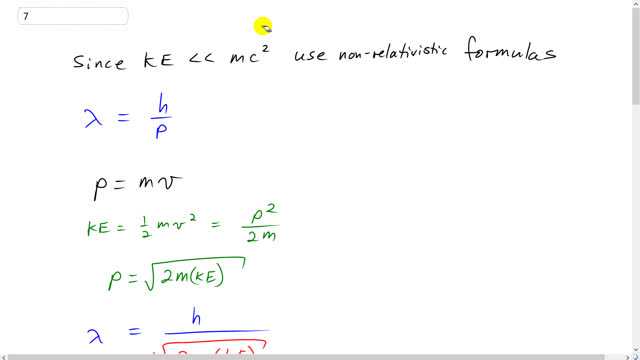 7
Since KE << mc² use non-relativistic formulas
λ = h/p
p = mv
KE = 1/2 mv² = p²/2m
p = √2m(KE)
λ = h